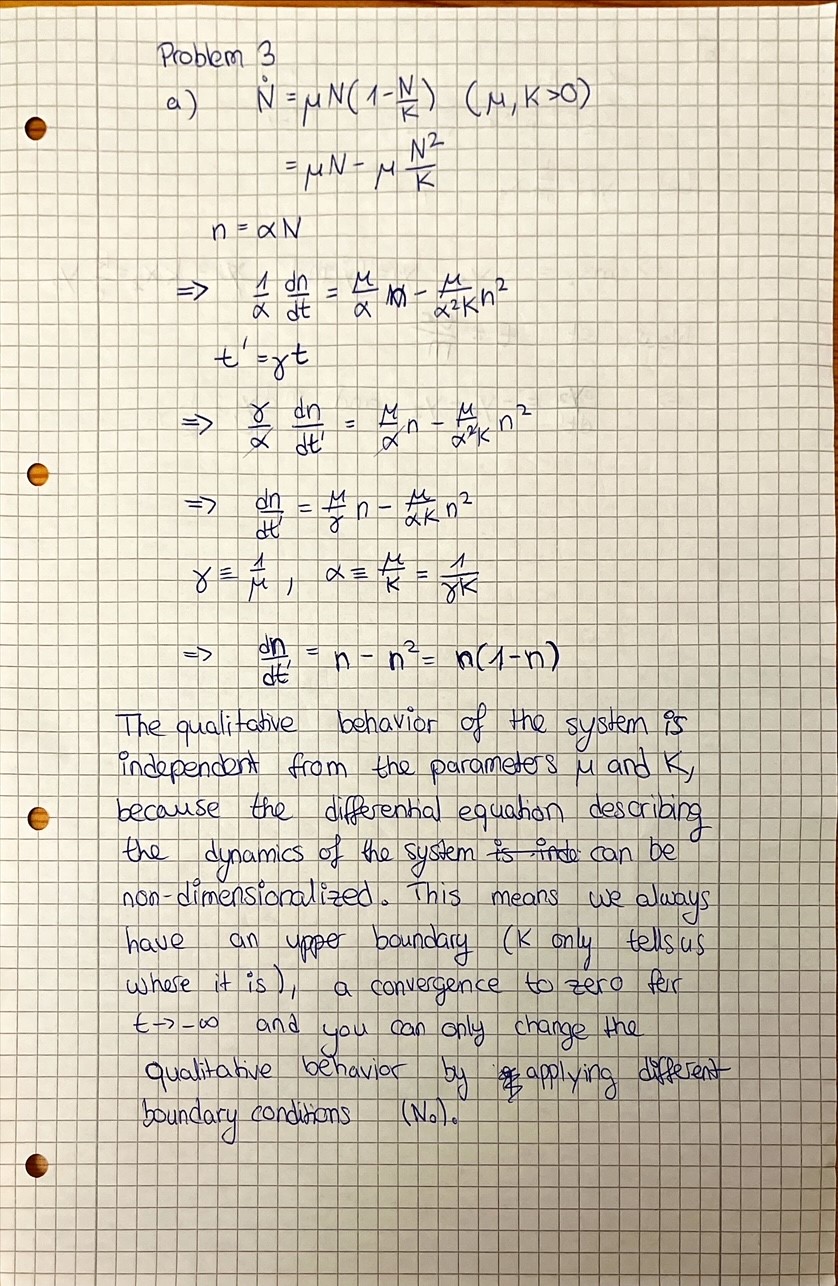 Problem 3
a) Ṅ = μN(1-N/K) (μ, K>0)
= μN - μ N²/K
n = αN
=> 1/α dn/dt = μ/α n - μ/α²K n²
t' = γt
=> γ/α dn/dt' = μ/α n - μ/α²K n²
=> dn/dt' = μ/γ n - μ/αK n²
γ ≡ 1/μ, α ≡ μ/K = 1/γK
=> dn/dt' = n - n² = n(1-n)
The qualitative behavior of the system is
independent from the parameters μ and K,
because the differential equation describing
the dynamics of the system is inde can be
non-dimensionalized. This means we always
have an upper boundary (K only tells us
where it is), a convergence to zero for
t→-∞ and you can only change the
qualitative behavior by applying different
boundary conditions (N₀).